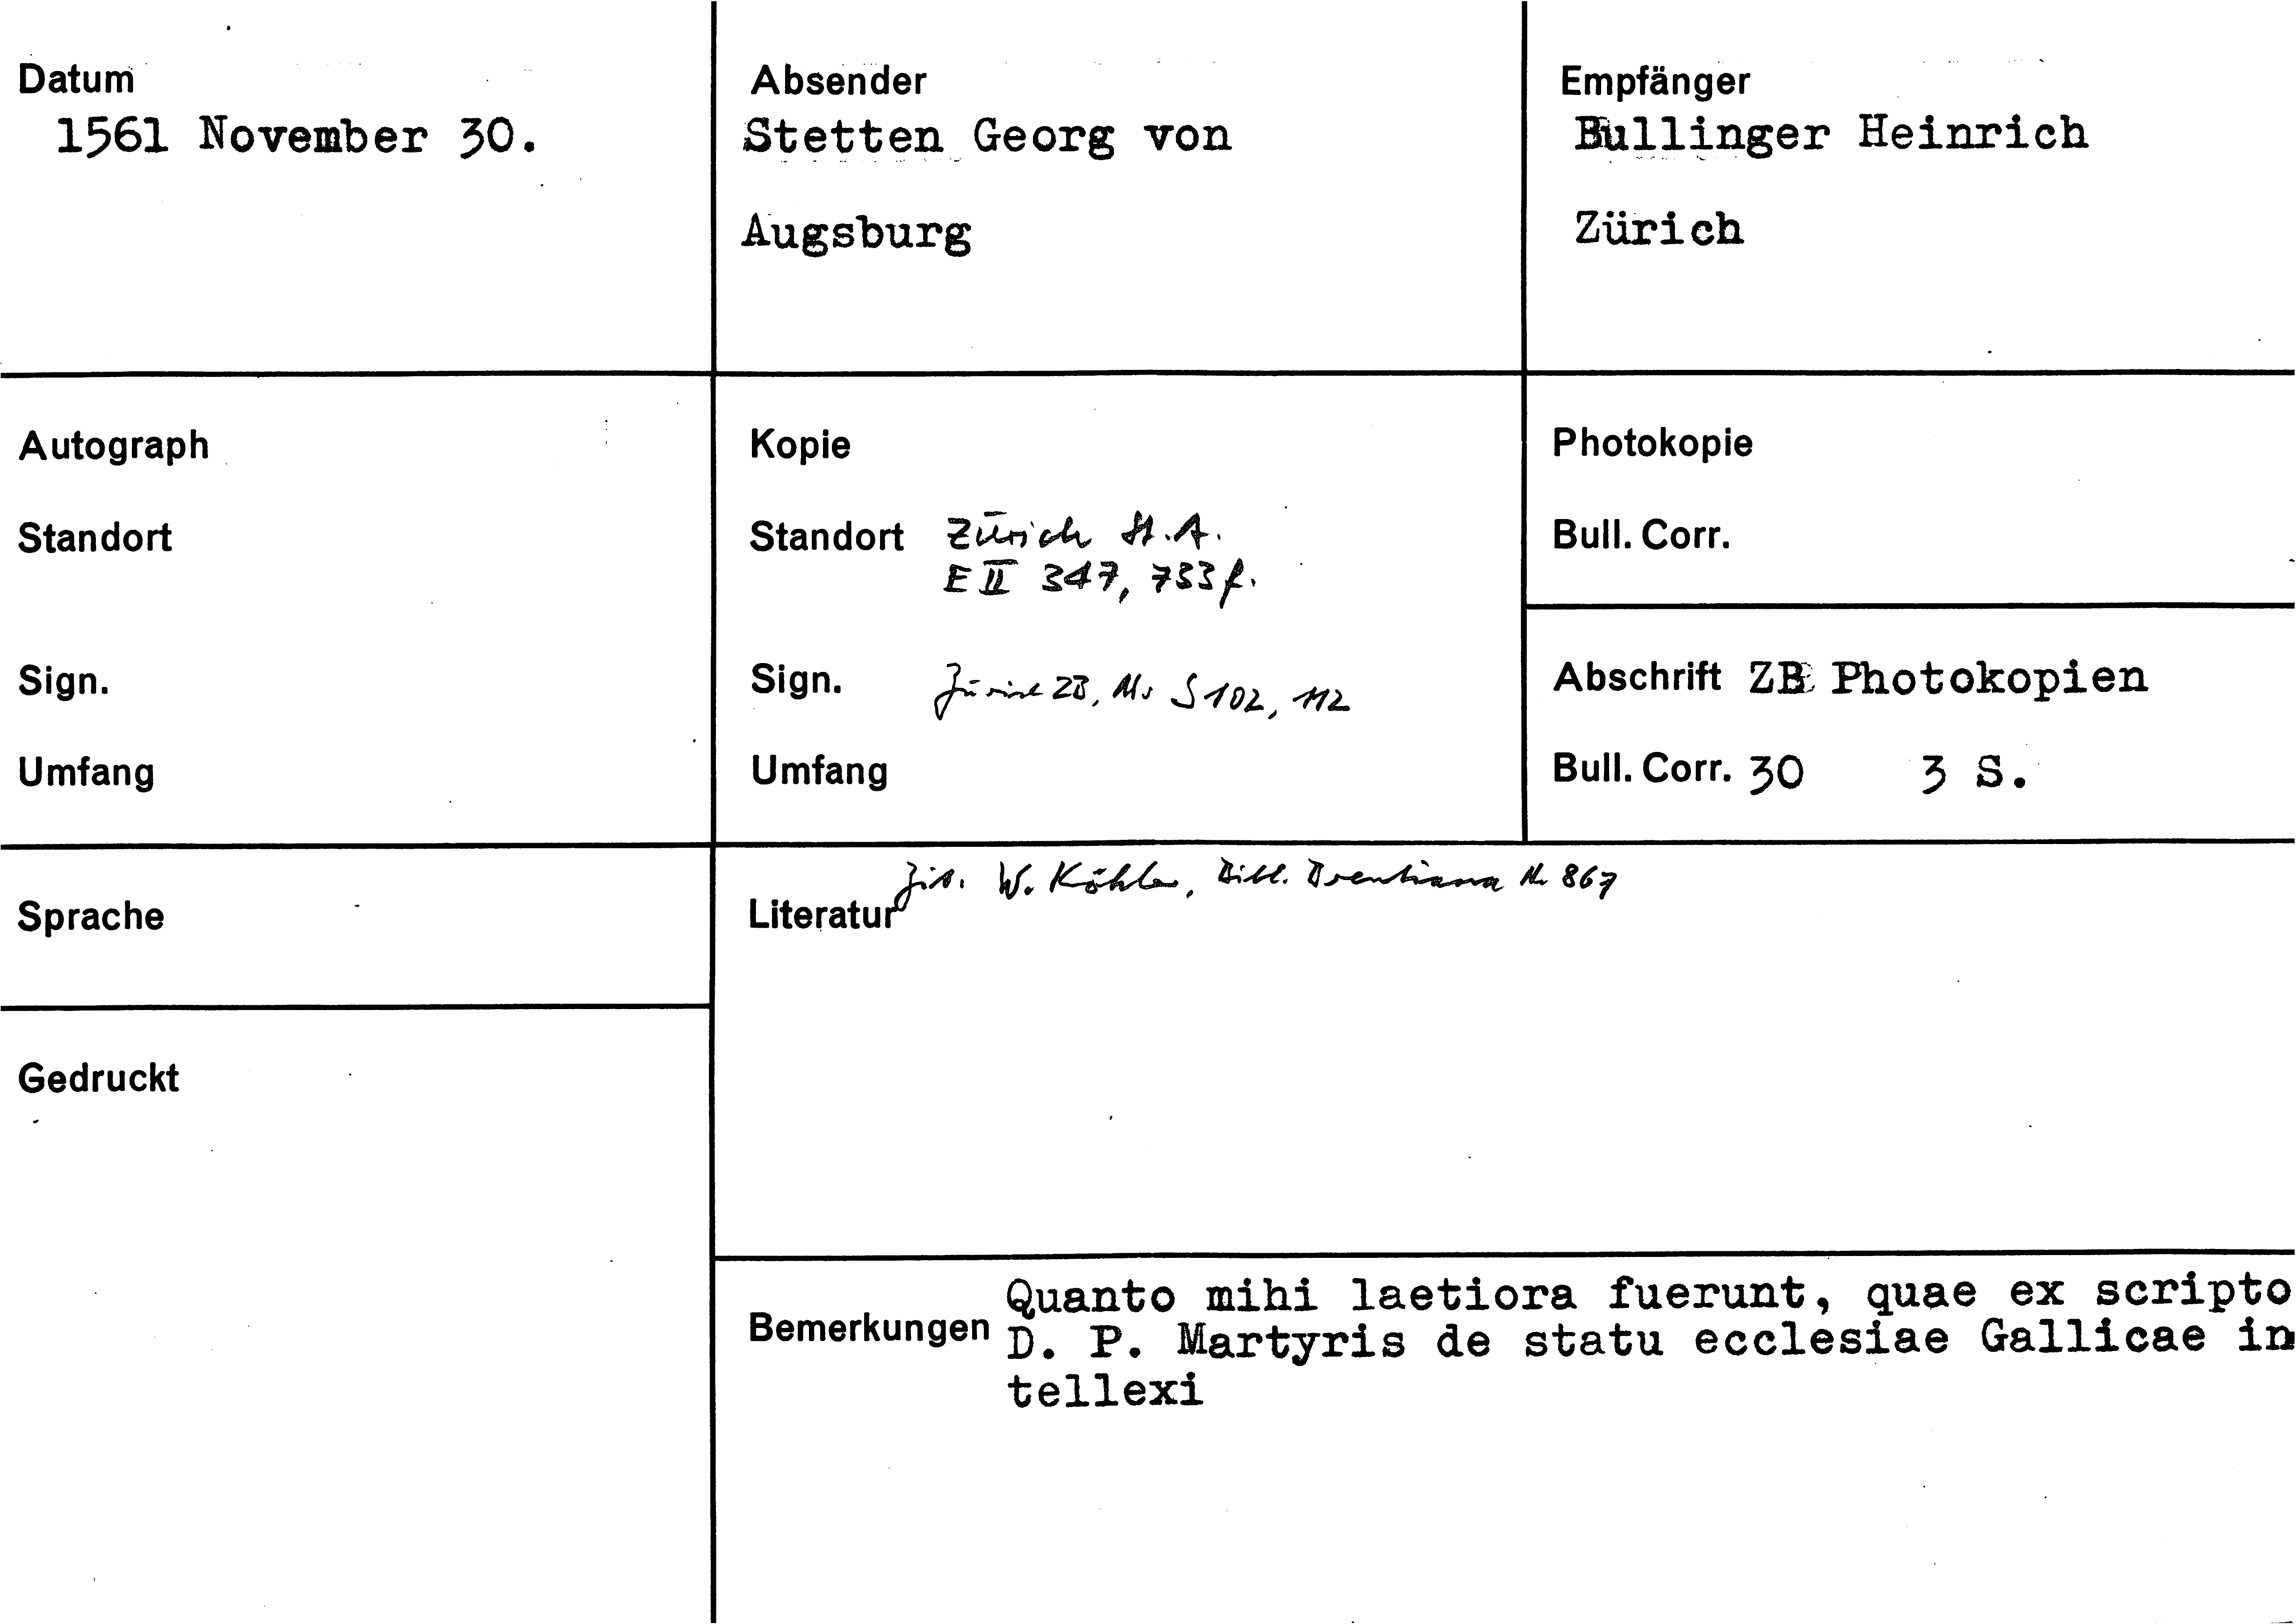 Datum
1561 November 30.
Absender
Stetten Georg von
Augsburg
Empfänger
Bullinger Heinrich
Zürich
Autograph
Standort
Sign.
Umfang
Kopie
Standort Zürich St.A.
E II 347, 733 f.
Sign. Zürich ZB, Ms S 102, 112
Umfang
Photokopie
Bull. Corr.
Abschrift ZB Photokopien
Bull. Corr. 30 3 S.
Sprache
Gedruckt
Zit. W. Köhler, Bibl. Brentiana Nr. 867
Literatur
Bemerkungen
Quanto mihi laetiora fuerunt, quae ex scripto
D. P. Martyris de statu ecclesiae Gallicae in
tellexi